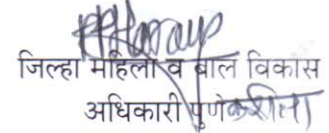 जिल्हा महिला व बाल विकास
अधिकारी पुणेकरीता